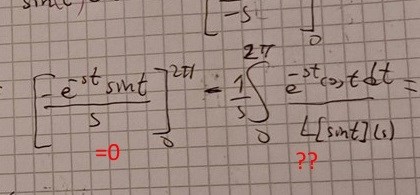 sint
[-s]0
[-e^-st sint / s]0^2π - 1/s ∫0^2π e^-st cost dt =
L[sint](s)
=0
??